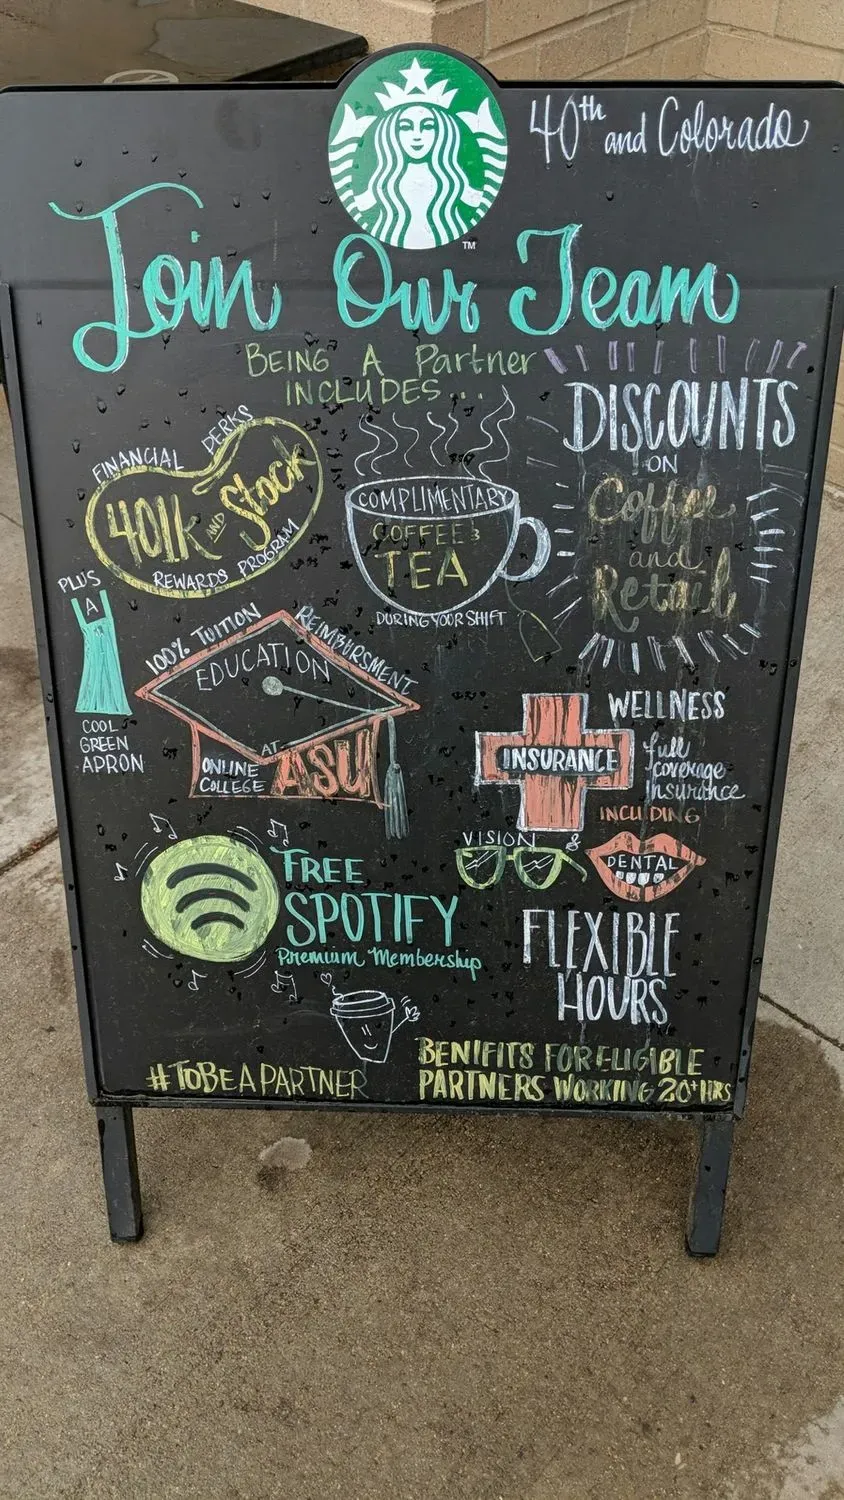 40th and Colorado
TM
Join Our Team
BEING A Partner
INCLUDES...
FINANCIAL PERKS
401K AND Stock
REWARDS PROGRAM
COMPLIMENTARY
COFFEE &
TEA
DURING YOUR SHIFT
DISCOUNTS
ON
Coffee
and
Retail
PLUS
A
COOL
GREEN
APRON
100% TUITION REIMBURSMENT
EDUCATION
AT
ONLINE
COLLEGE
ASU
WELLNESS
INSURANCE
full
coverage
insurance
INCLUDING
VISION &
DENTAL
FREE
SPOTIFY
Premium Membership
FLEXIBLE
HOURS
#TOBEAPARTNER
BENIFITS FOR ELIGIBLE
PARTNERS WORKING 20+ HRS